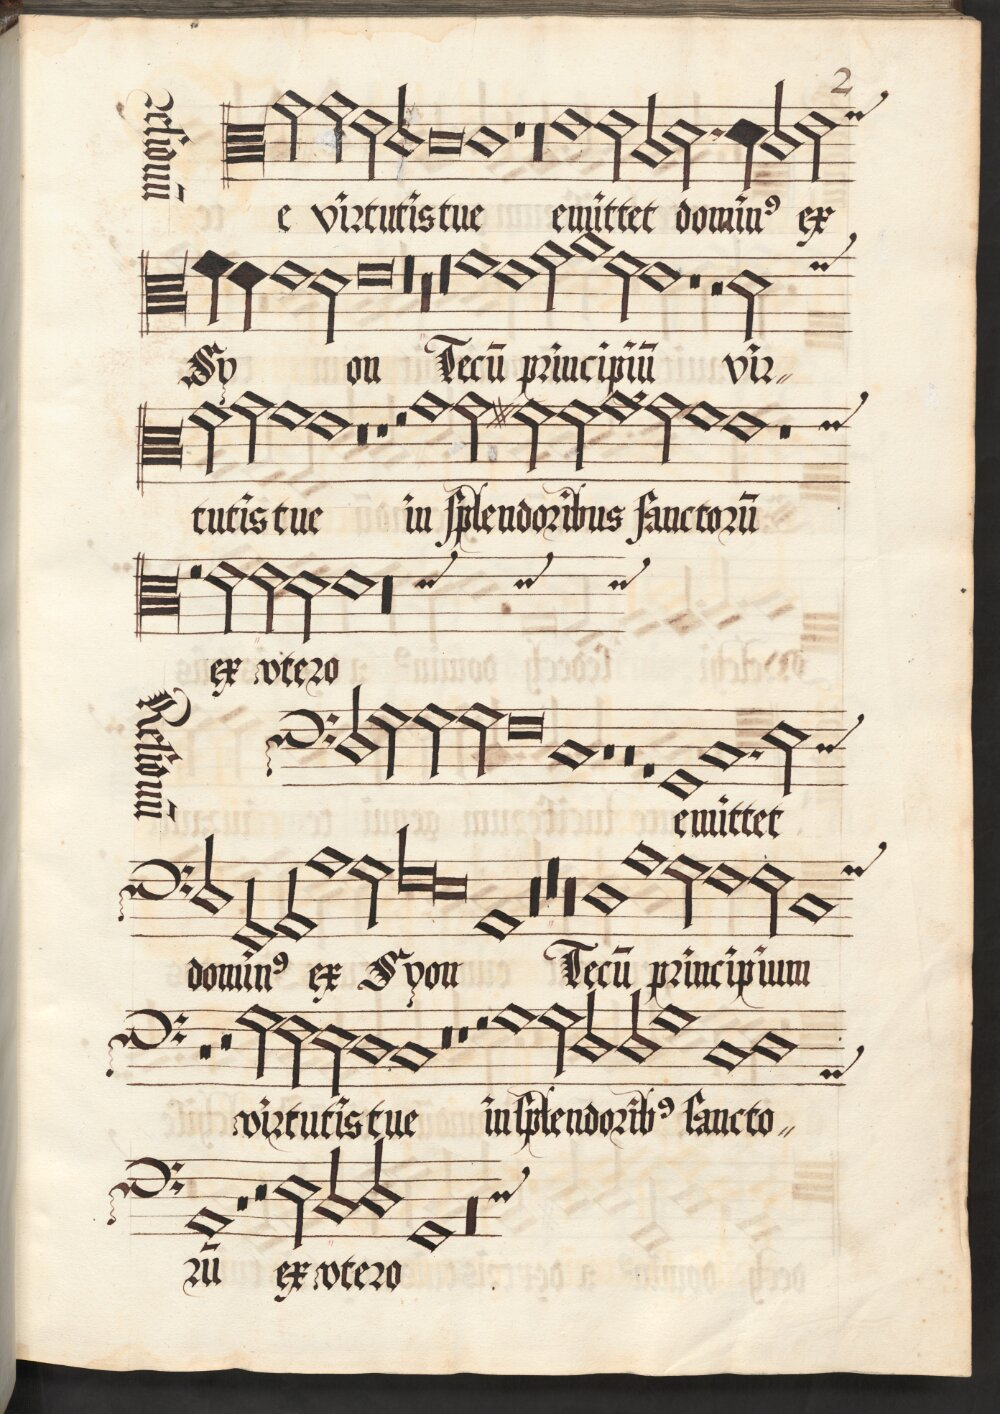 2
Residuū
e virtutis tue emittet domin⁹ ex
Sy on Tecū principiū vir„
tutis tue in splendoribus sanctorū
ex vtero
Residuū
emittet
domin⁹ ex Syon Tecū principium
virtutis tue in splendorib⁹ sancto„
rū ex vtero